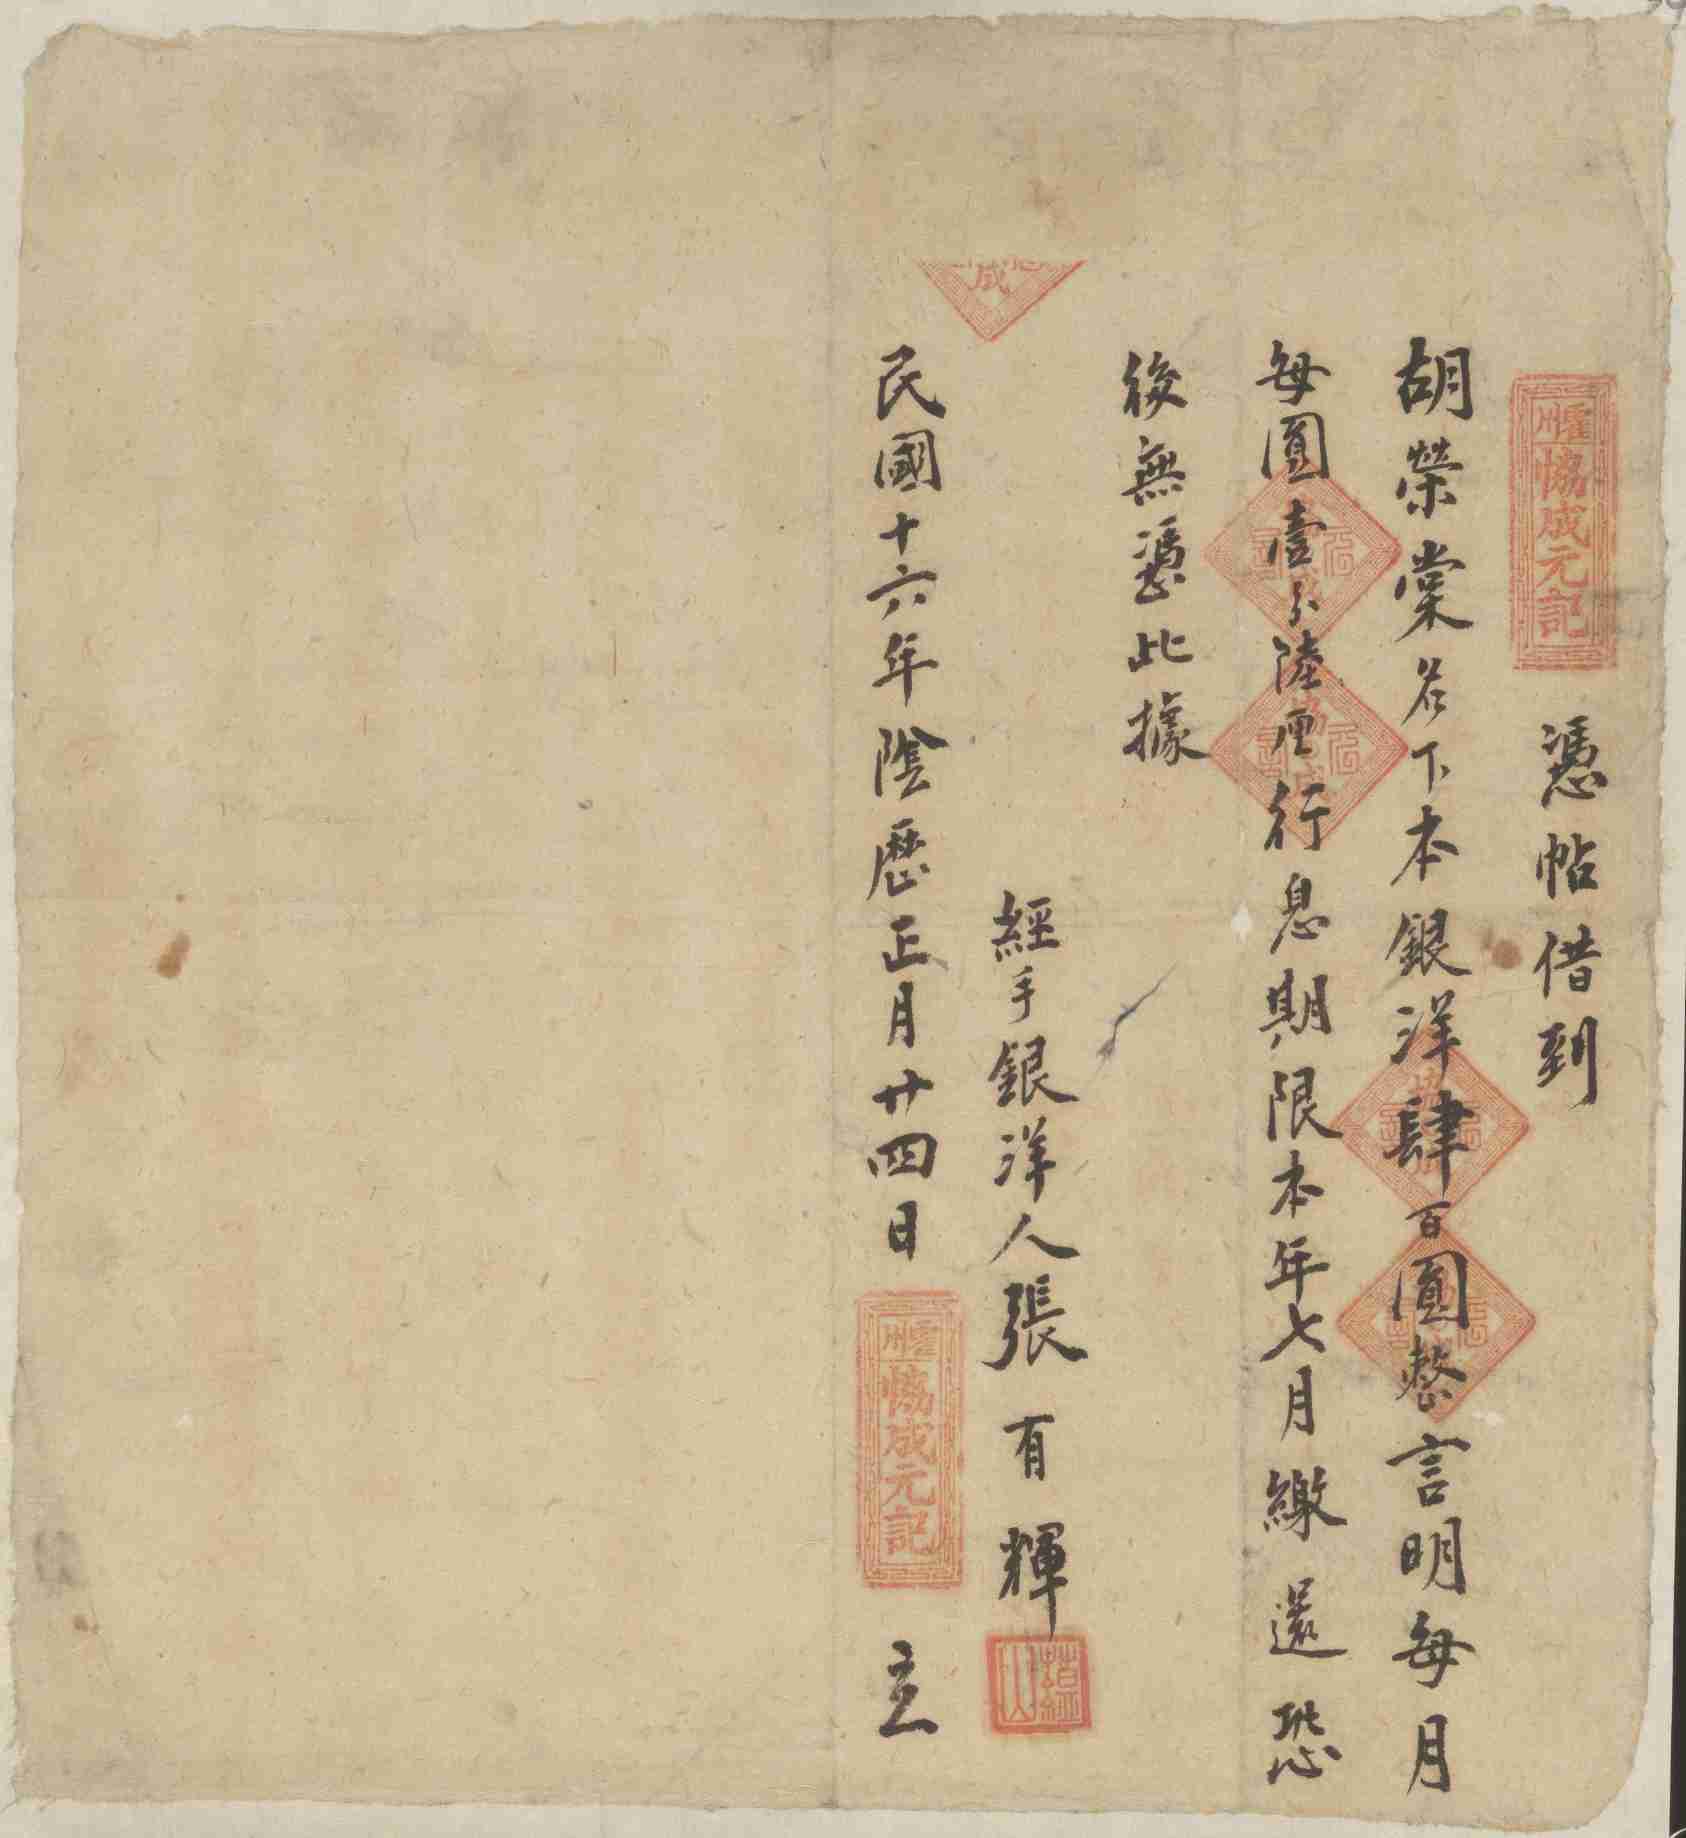 協成元記
憑帖借到
胡榮棠名下本銀洋肆百圓整言明每月
每圓壹分陸厘行息期限本年七月繳還恐
後無憑此據
成
經手銀洋人張有輝
民國十六年陰歷正月廿四日
協成元記
立